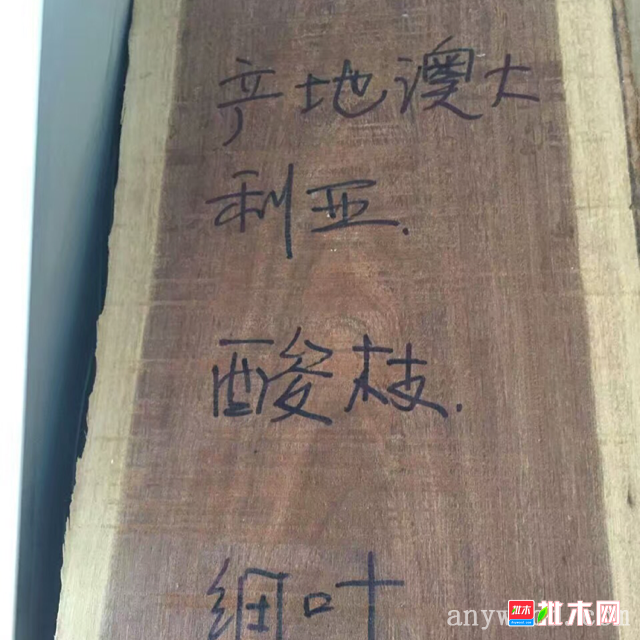 产地澳大
利亚.
酸枝.
细叶
批木 批木网